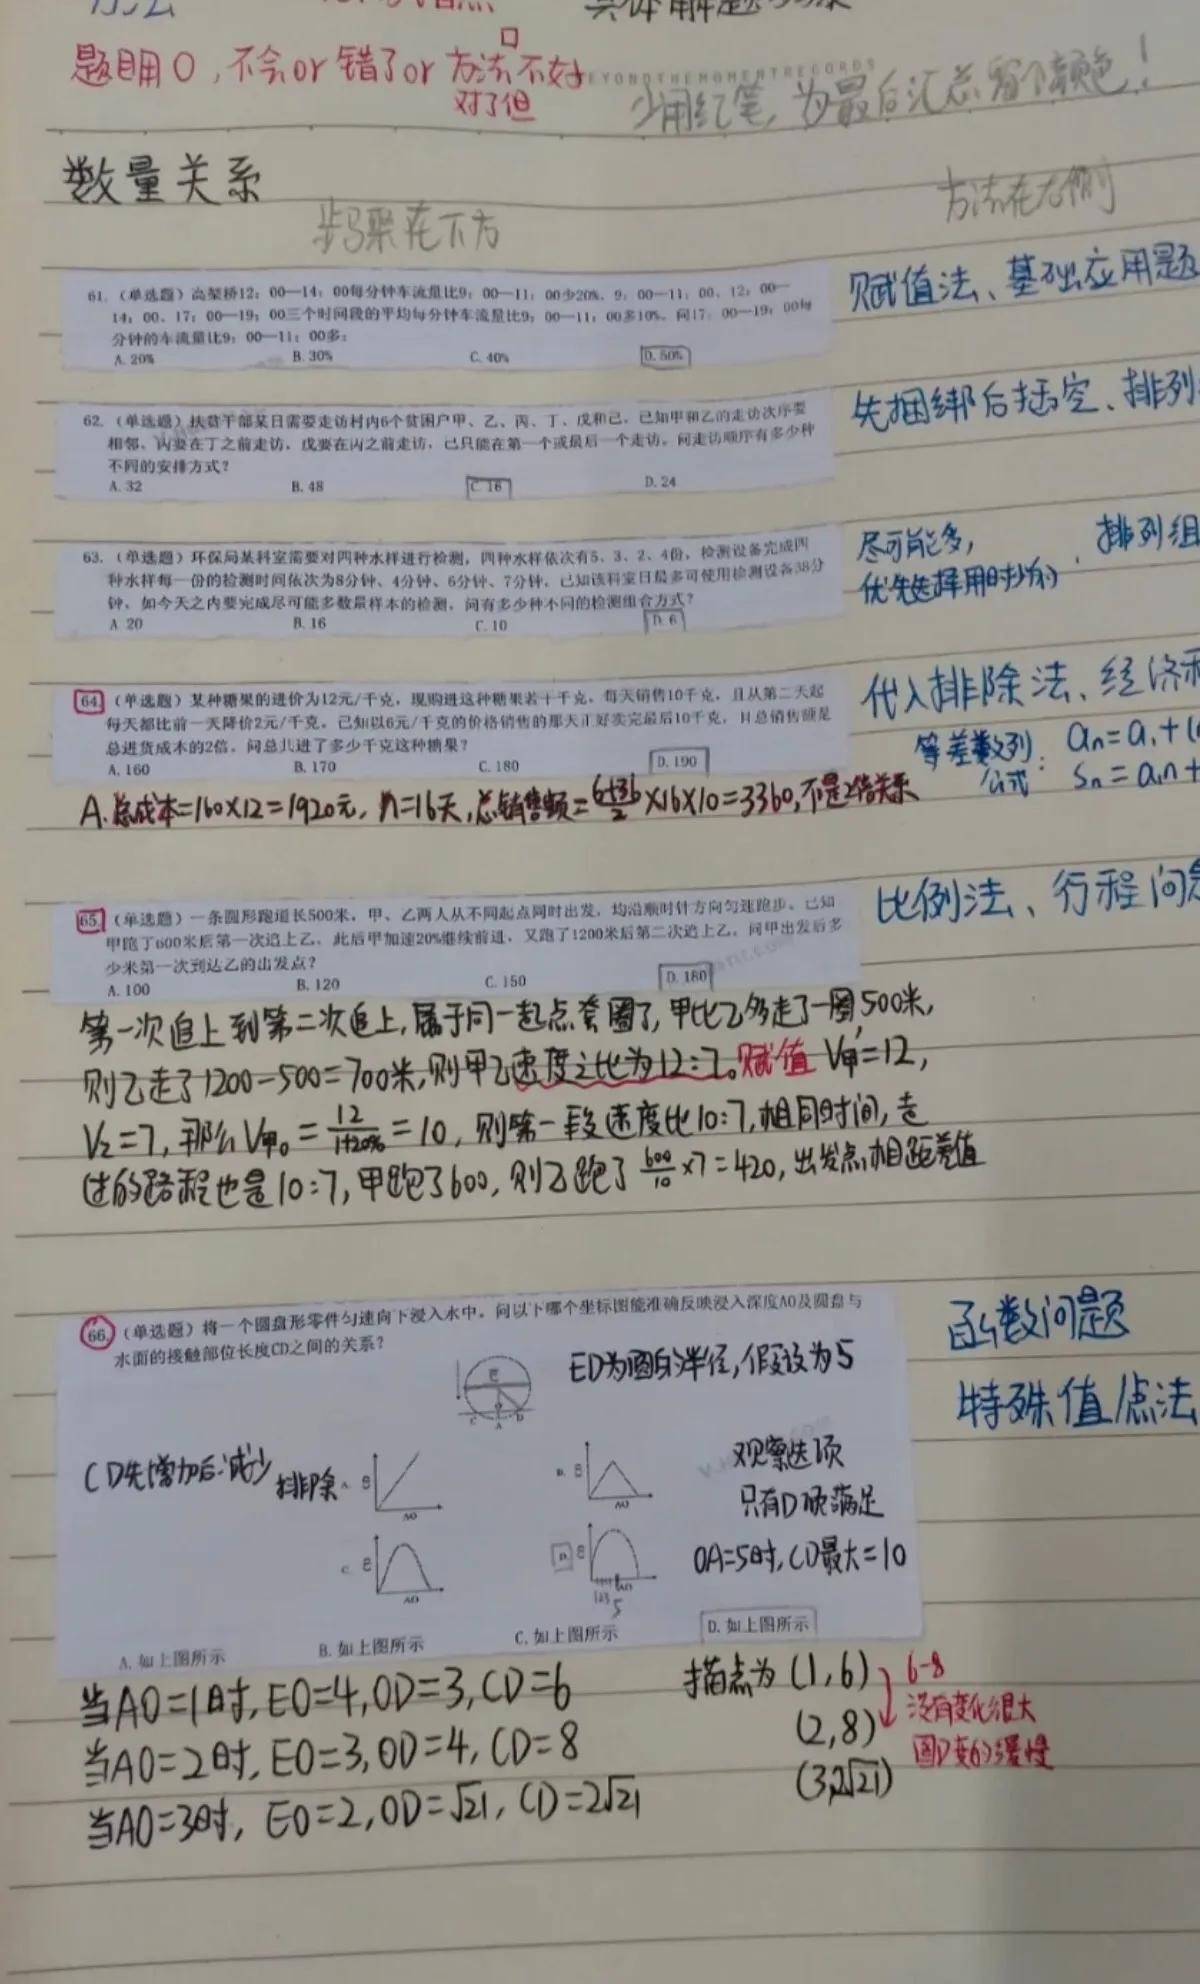 题目用O，不会or错了or方法不好
对了但
BEYONDTHEMOMENTRECORDS
少用红笔，为最后汇总留个颜色！
数量关系
步骤在下方
方法在右侧
61.（单选题）高架桥12：00—14：00每分钟车流量比9：00—11：00少20%，9：00—11：00、12：00—
14：00、17：00—19：00三个时间段的平均每分钟车流量比9：00—11：00多10%。问17：00—19：00每
分钟的车流量比9：00—11：00多：
A. 20% B. 30% C. 40% D. 50%
赋值法、基础应用题
62.（单选题）扶贫干部某日需要走访村内6个贫困户甲、乙、丙、丁、戊和己。已知甲和乙的走访次序要
相邻，丙要在丁之前走访，戊要在丙之前走访，己只能在第一个或最后一个走访。问走访顺序有多少种
不同的安排方式？
A. 32 B. 48 C. 16 D. 24
先捆绑后插空、排列
63.（单选题）环保局某科室需要对四种水样进行检测，四种水样依次有5、3、2、4份，检测设备完成四
种水样每一份的检测时间依次为8分钟、4分钟、6分钟、7分钟。已知该科室日最多可使用检测设备38分
钟，如今天之内要完成尽可能多数量样本的检测，问有多少种不同的检测组合方式？
A. 20 B. 16 C. 10 D. 6
尽可能多，
优先选择用时少的、排列组
64.（单选题）某种糖果的进价为12元/千克，现购进这种糖果若干千克，每天销售10千克，且从第二天起
每天都比前一天降价2元/千克。已知以6元/千克的价格销售的那天正好卖完最后10千克，且总销售额是
总进货成本的2倍。问总共进了多少千克这种糖果？
A. 160 B. 170 C. 180 D. 190
代入排除法、经济利
等差数列 公式：
an=a1+(n
Sn=a1n+
A.总成本=160×12=1920元，n=16天，总销售额=(6+36)/2×16×10=3360，不是2倍关系
65.（单选题）一条圆形跑道长500米，甲、乙两人从不同起点同时出发，均沿顺时针方向匀速跑步。已知
甲跑了600米后第一次追上乙，此后甲加速20%继续前进，又跑了1200米后第二次追上乙。问甲出发后多
少米第一次到达乙的出发点？
A. 100 B. 120 C. 150 D. 180
比例法、行程问题
第一次追上到第二次追上，属于同一起点套圈了，甲比乙多走了一圈500米，
则乙走了1200-500=700米，则甲乙速度之比为12:7。赋值V甲'=12，
V乙=7，那么V甲。=12/(1+20%)=10，则第一段速度比10:7，相同时间，走
过的路程也是10:7，甲跑了600，则乙跑了600/10×7=420，出发点相距差值
66.（单选题）将一个圆盘形零件匀速向下浸入水中。问以下哪个坐标图能准确反映浸入深度AO及圆盘与
水面的接触部位长度CD之间的关系？
函数问题
特殊值/点法
E
O
C A D
ED为圆盘半径，假设为5
CD先增加后减少
排除
A. CD AO
B. CD AO
观察选项
只有D项满足
OA=5时，CD最大=10
C. CD AO
D. CD AO
123 5
A. 如上图所示 B. 如上图所示 C. 如上图所示 D. 如上图所示
当AO=1时，EO=4，OD=3，CD=6
当AO=2时，EO=3，OD=4，CD=8
当AO=3时，EO=2，OD=√21，CD=2√21
描点为 (1,6)
(2,8)
(3,2√21)
6-8
没有变化很大
图D变的缓慢